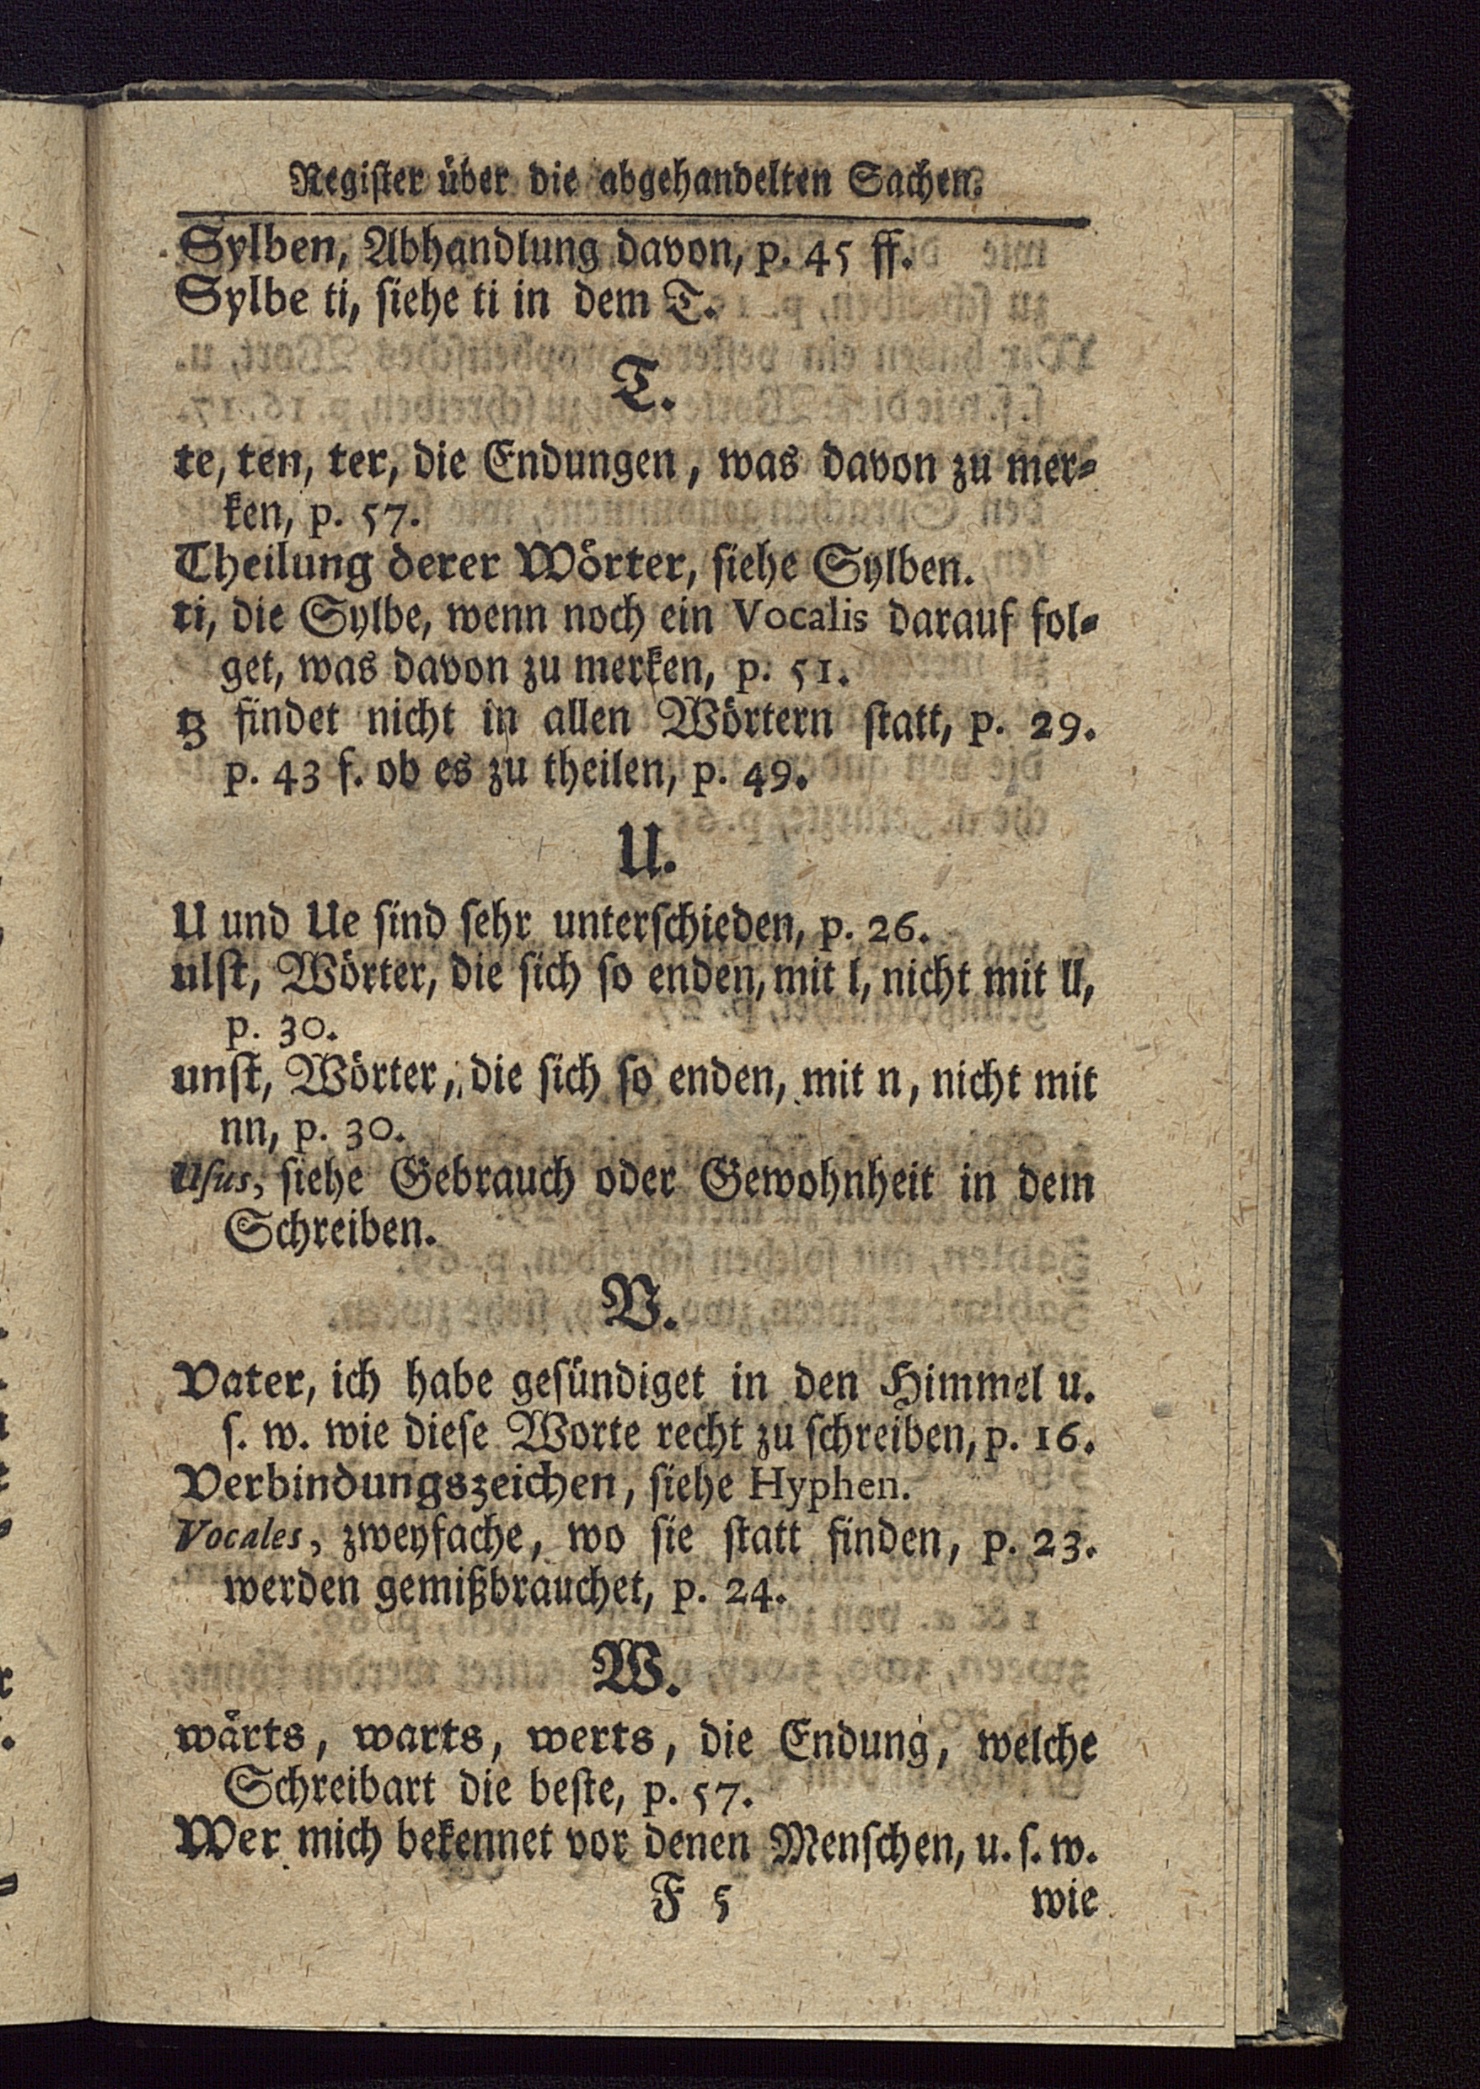 Register über die abgehandelten Sachen.
Sylben, Abhandlung davon, p. 45 ff.
Sylbe ti, siehe ti in dem T.
T.
te, ten, ter, die Endungen, was davon zu mer-
ken, p. 57.
Theilung derer Wörter, siehe Sylben.
ti, die Sylbe, wenn noch ein Vocalis darauf fol-
get, was davon zu merken, p. 51.
tz findet nicht in allen Wörtern statt, p. 29.
p. 43 f. ob es zu theilen, p. 49.
U.
U und Ue sind sehr unterschieden, p. 26.
ulst, Wörter, die sich so enden, mit l, nicht mit ll,
p. 30.
unst, Wörter, die sich so enden, mit n, nicht mit
nn, p. 30.
Usus, siehe Gebrauch oder Gewohnheit in dem
Schreiben.
V.
Vater, ich habe gesündiget in den Himmel u.
s. w. wie diese Worte recht zu schreiben, p. 16.
Verbindungszeichen, siehe Hyphen.
Vocales, zweyfache, wo sie statt finden, p. 23.
werden gemißbrauchet, p. 24.
W.
wärts, warts, werts, die Endung, welche
Schreibart die beste, p. 57.
Wer mich bekennet vor denen Menschen, u. s. w.
F 5 wie